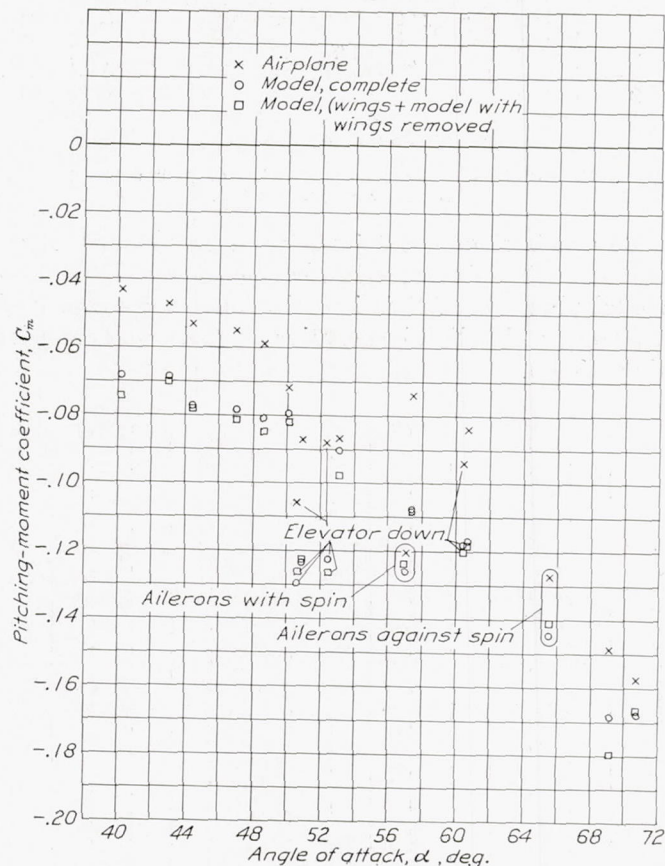 × Airplane
○ Model, complete
□ Model, (wings + model with
wings removed
0
-.02
-.04
-.06
-.08
-.10
-.12
-.14
-.16
-.18
-.20
Pitching-moment coefficient, Cm
Elevator down
Ailerons with spin
Ailerons against spin
40 44 48 52 56 60 64 68 72
Angle of attack, α, deg.